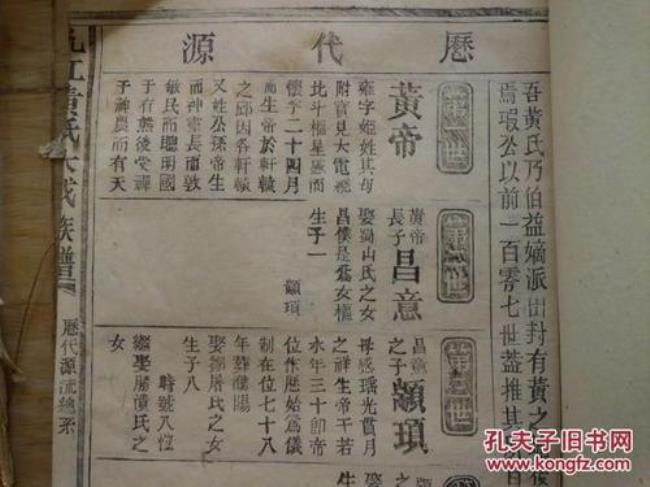 吾黃氏乃伯益嫡派出封有黃之
焉瑕公以前一百零七世蓋推其
源代歷
第一世
黃帝
姓公孫其母
附寶見大電繞
北斗樞星感而
懷孕二十四月
而生帝於軒轅
之邱因名軒轅
又姓公孫帝生
而神靈長而敦
敏民而聰明國
于有熊後受禪
于神農而有天
第二世
黃帝
長子
昌意
娶蜀山氏之女
昌僕是為女樞
生子一
顓頊
第三世
昌意
之子
顓頊
母感瑤光貫月
之祥生帝于若
水年三十卽帝
位作歷始爲儀
制在位七十八
年葬濮陽
娶鄒屠氏之女
生子八
時號八愷
繼娶勝濆氏之
女
九江黃氏大成族譜
歷代源流總系
孔夫子旧书网
www.kongfz.com